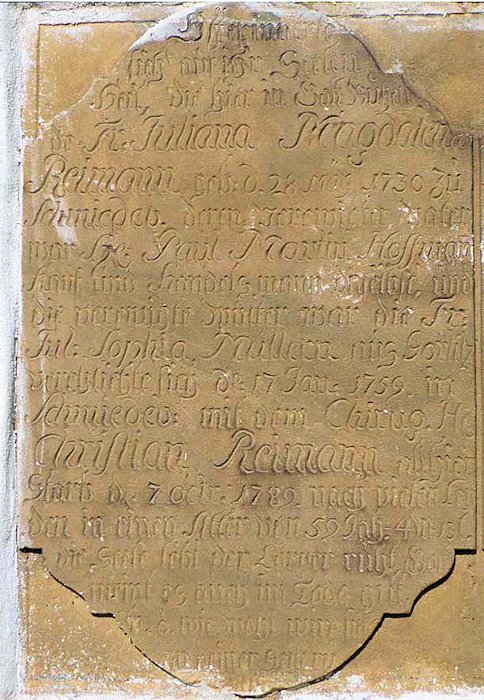 sich auf ihr Seelen
Heil, die hier in Gott
de Fr. Juliana Magdalena
Reimann geb: d. 28 May 1730 zu
Schmiedeb. deren verewigter Vater
war He: Paul Martin Hoffman
Kauf und Handels mann daselbst, und
die verewigte Mutter war die Fr.
Jul. Sophia Müllern aus Görlitz
verehlichte sich d: 17 Jan: 1759. in
Schmiedeb: mit dem Chirug. He
Christian Reimann allhier
Starb d. 7 Octr. 1789 nach vielen Lei
den in einen Alter von 59 Jah: 4 M:
die Seele lebt der Cörper ruht Gott
meint es auch im Tode gut
wie wohl wird
in seiner